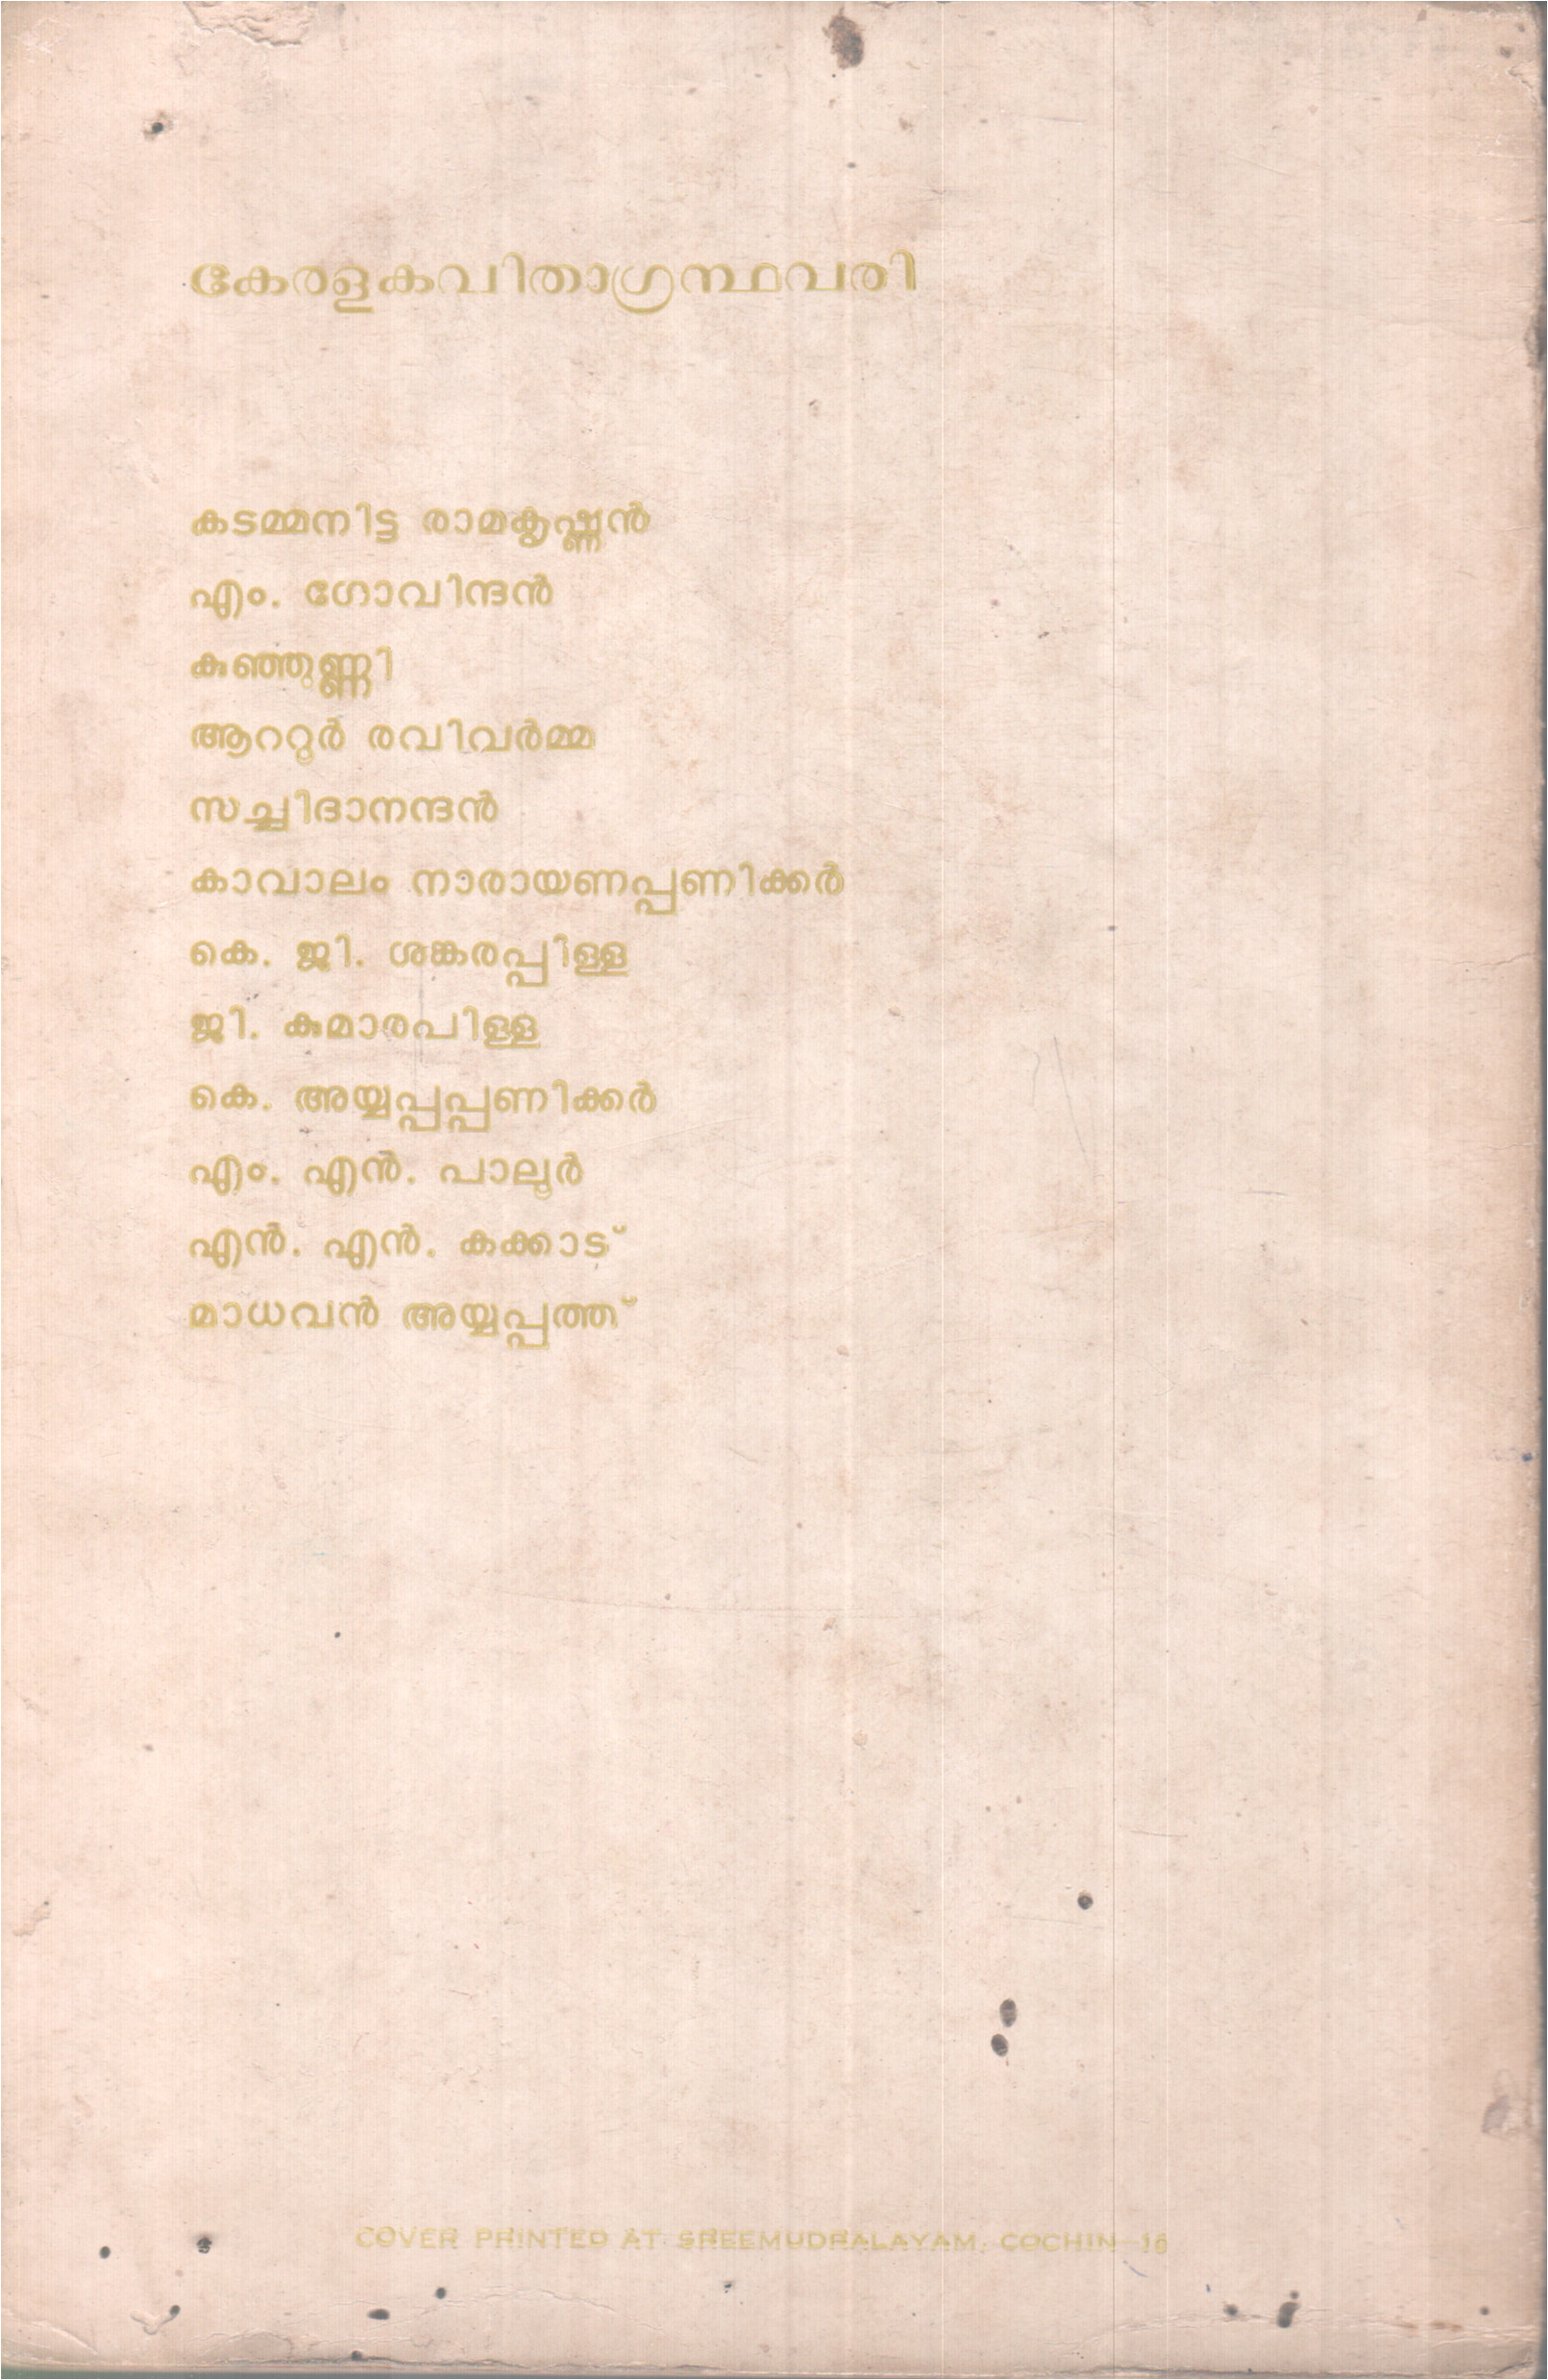 കേരളകവിതാഗ്രന്ഥവരി
കടമ്മനിട്ട രാമകൃഷ്ണൻ
എം. ഗോവിന്ദൻ
കുഞ്ഞുണ്ണി
ആററൂർ രവിവർമ്മ
സച്ചിദാനന്ദൻ
കാവാലം നാരായണപ്പണിക്കർ
കെ. ജി. ശങ്കരപ്പിള്ള
ജി. കുമാരപിള്ള
കെ. അയ്യപ്പപ്പണിക്കർ
എം. എൻ. പാലൂർ
എൻ. എൻ. കക്കാട്
മാധവൻ അയ്യപ്പത്ത്
COVER PRINTED AT SREEMUDRALAYAM, COCHIN-16